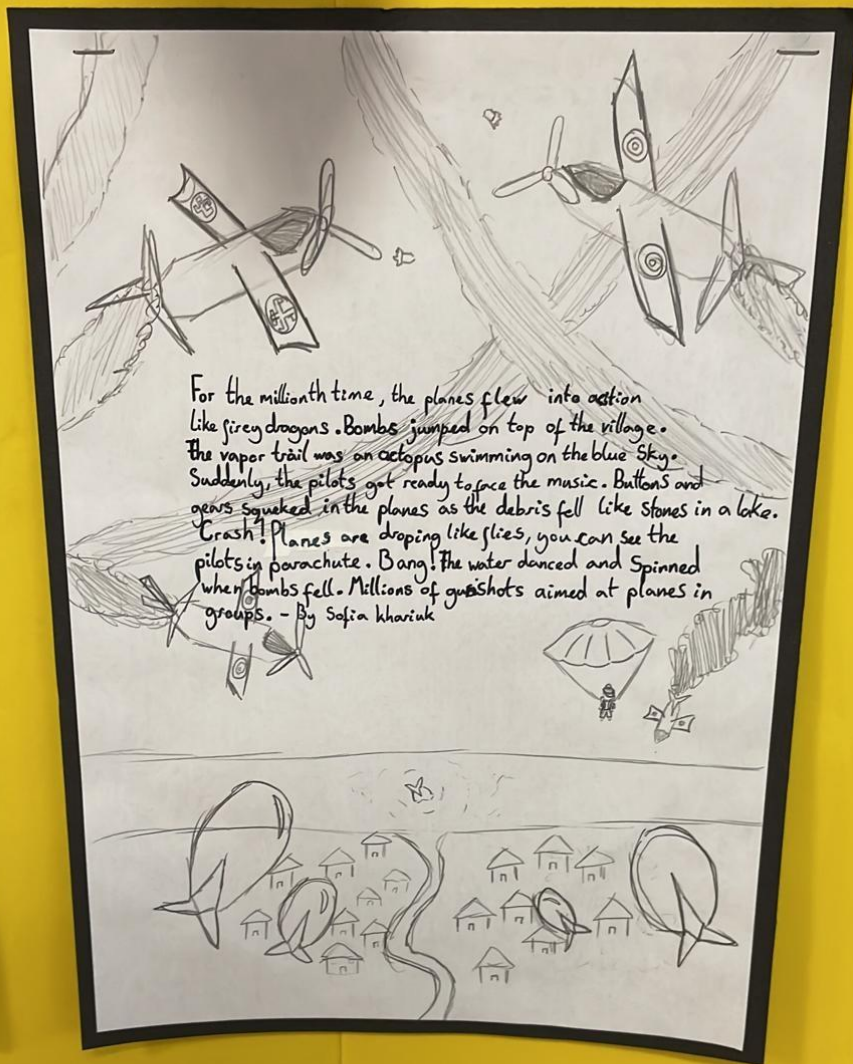 For the millionth time, the planes flew into action
like firey dragons. Bombs jumped on top of the village.
The vapor trail was an octopus swimming on the blue Sky.
Suddenly, the pilots got ready to face the music. Buttons and
gears squeked in the planes as the debris fell like stones in a lake.
Crash! Planes are droping like flies, you can see the
pilots in parachute. Bang! The water danced and Spinned
when bombs fell. Millions of gunshots aimed at planes in
groups. - By Sofia Khaviuk